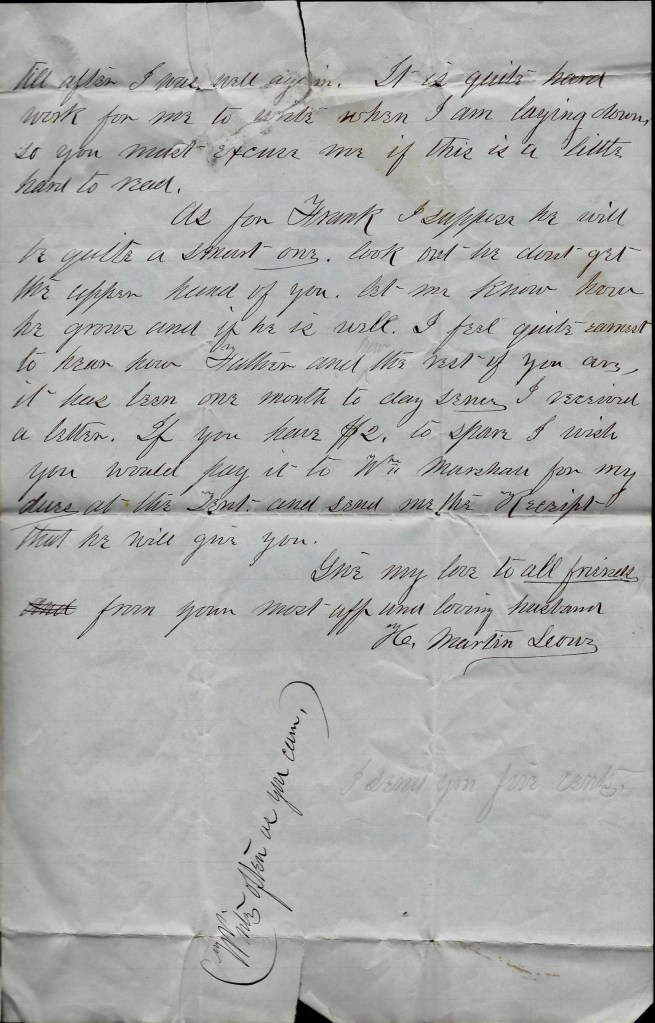 till after I was well again. It is quite hard
work for me to write when I am laying down,
so you must excuse me if this is a little
hard to read.
As for Frank I suppose he will
be quite a smart one. look out he dont get
the upper hand of you. let me know how
he grows and if he is well. I feel quite earnest
to hear how Father and the rest of you are,
it has been one month to day sence I received
a letter. If you have $2. to spare I wish
you would pay it to Wm Marshall for my
dues at the Tent. and send me the Receipt
that he will give you.
Give my love to all friends
and from your most aff and loving husband
H. Martin
I send you five cents.
(Write often as you can,)